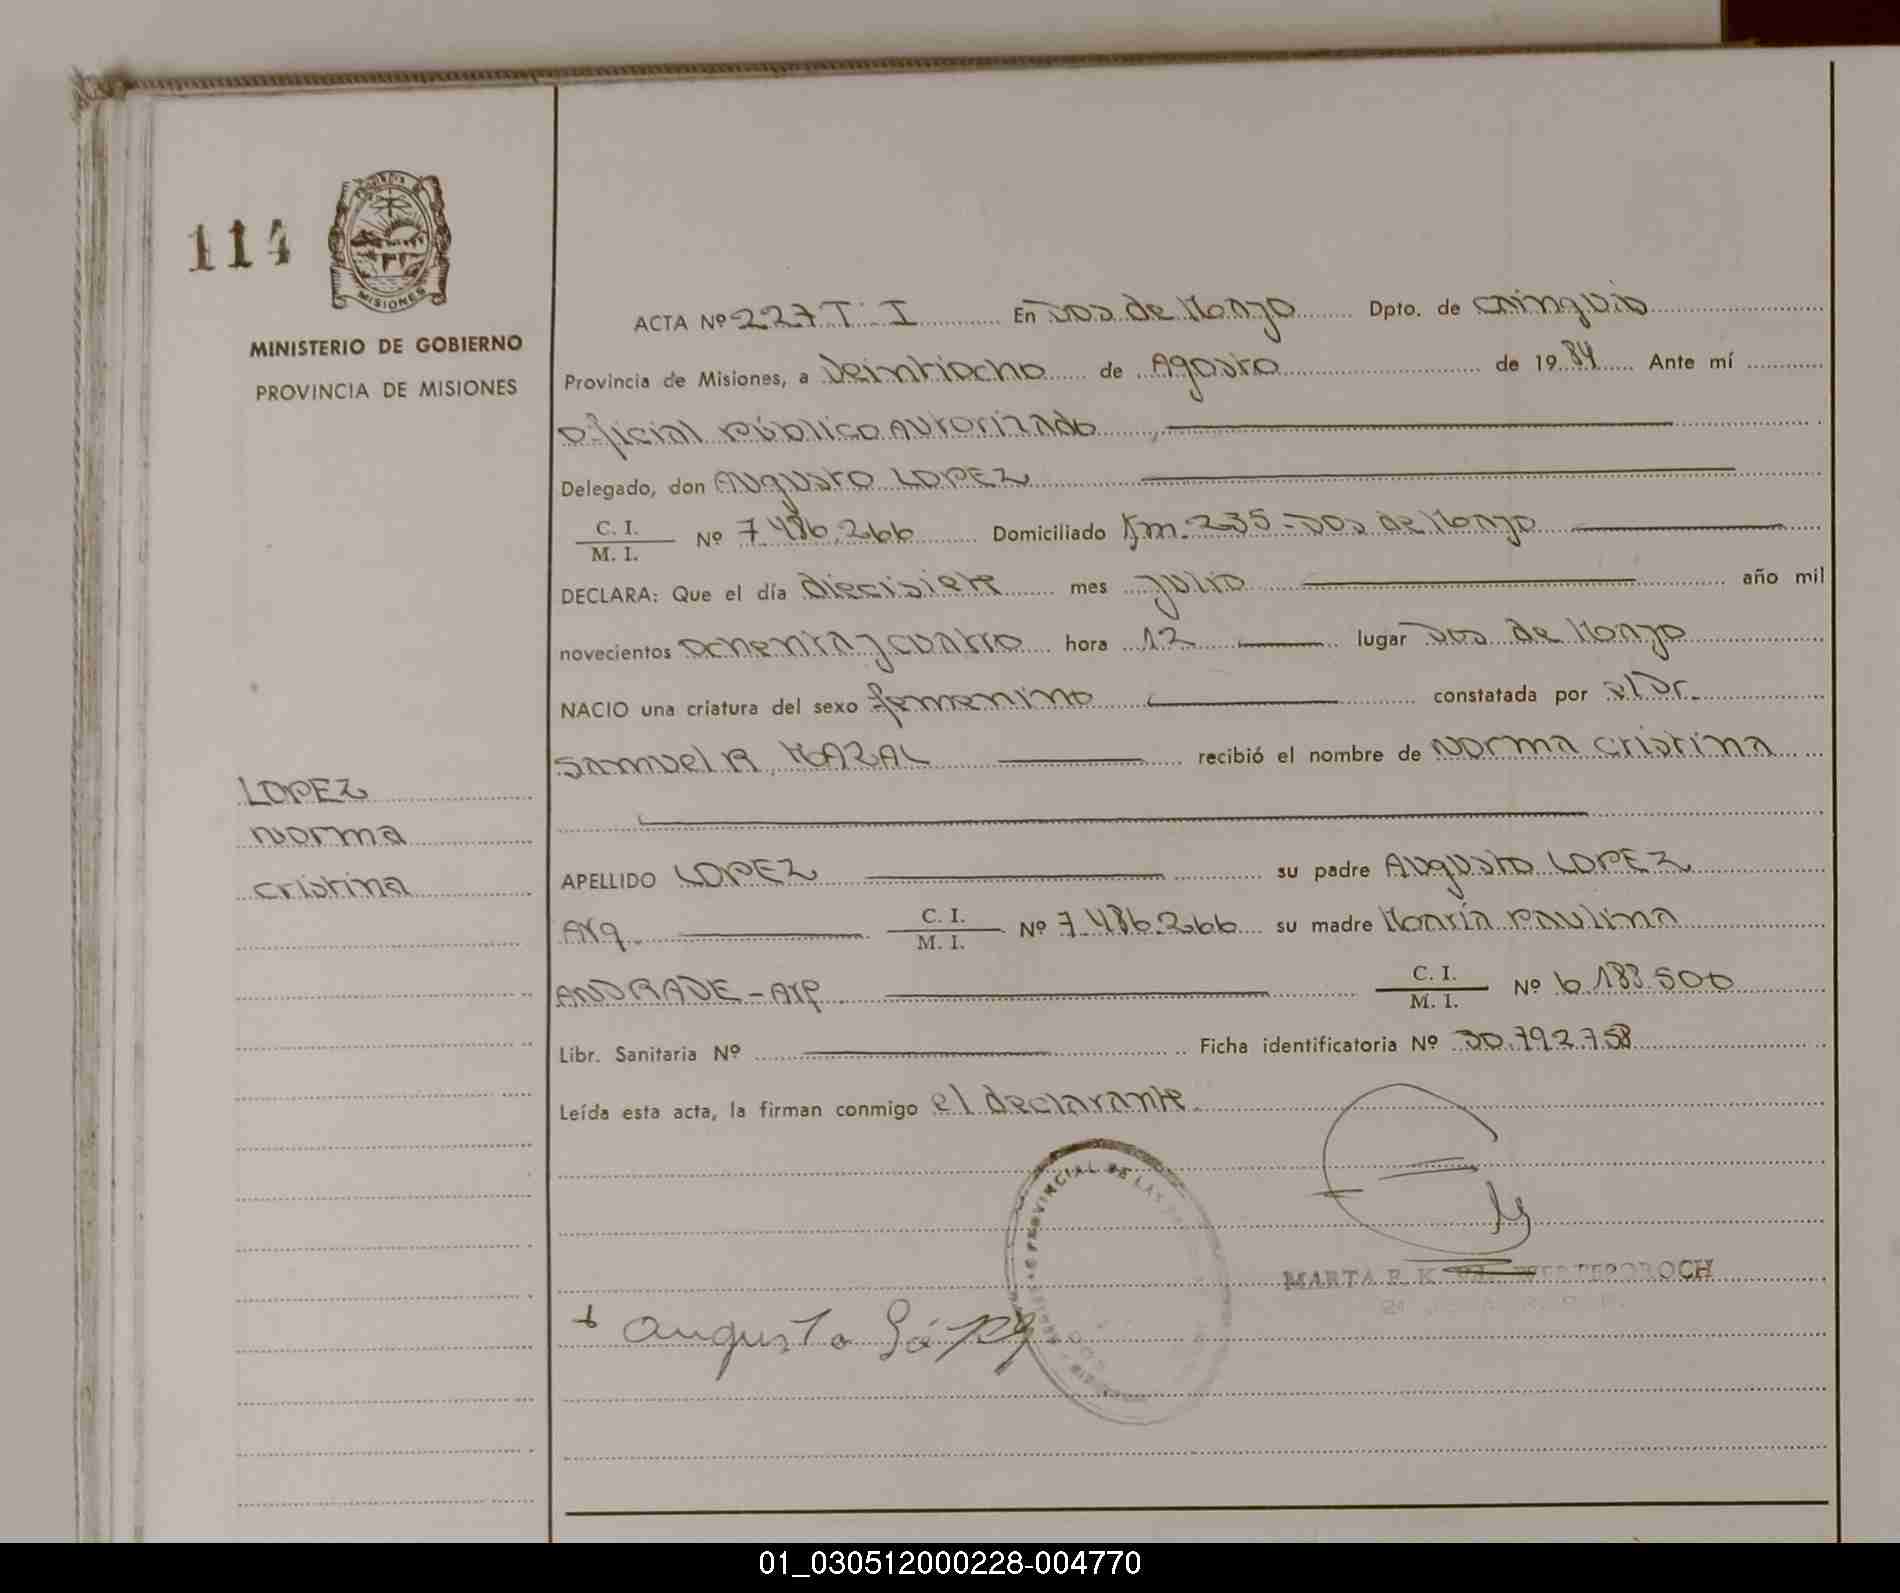 114
MISIONES
MINISTERIO DE GOBIERNO
PROVINCIA DE MISIONES
ACTA Nº 227 T: I En Dos de Mayo Dpto. de Cainguás
Provincia de Misiones, a Veintiocho de Agosto de 1984 Ante mí
Oficial Público Autorizado
Delegado, don Augusto LOPEZ
C. I.
M. I. Nº 7.486.266 Domiciliado Km. 235 - Dos de Mayo
DECLARA: Que el día diecisiete mes julio año mil
novecientos ochenta y cuatro hora 12 lugar Dos de Mayo
NACIO una criatura del sexo femenino constatada por el Dr.
Samuel R. MAZAL recibió el nombre de Norma Cristina
LOPEZ
Norma
Cristina
APELLIDO LOPEZ su padre Augusto LOPEZ
Arg. C. I.
M. I. Nº 7.486.266 su madre María Paulina
ANDRADE - Arg. C. I.
M. I. Nº 6.183.500
Libr. Sanitaria Nº Ficha identificatoria Nº 30.792.758
Leída esta acta, la firman conmigo el declarante.
PROVINCIAL DE LAS
MARTA E. K.
Augusto López
01_030512000228-004770